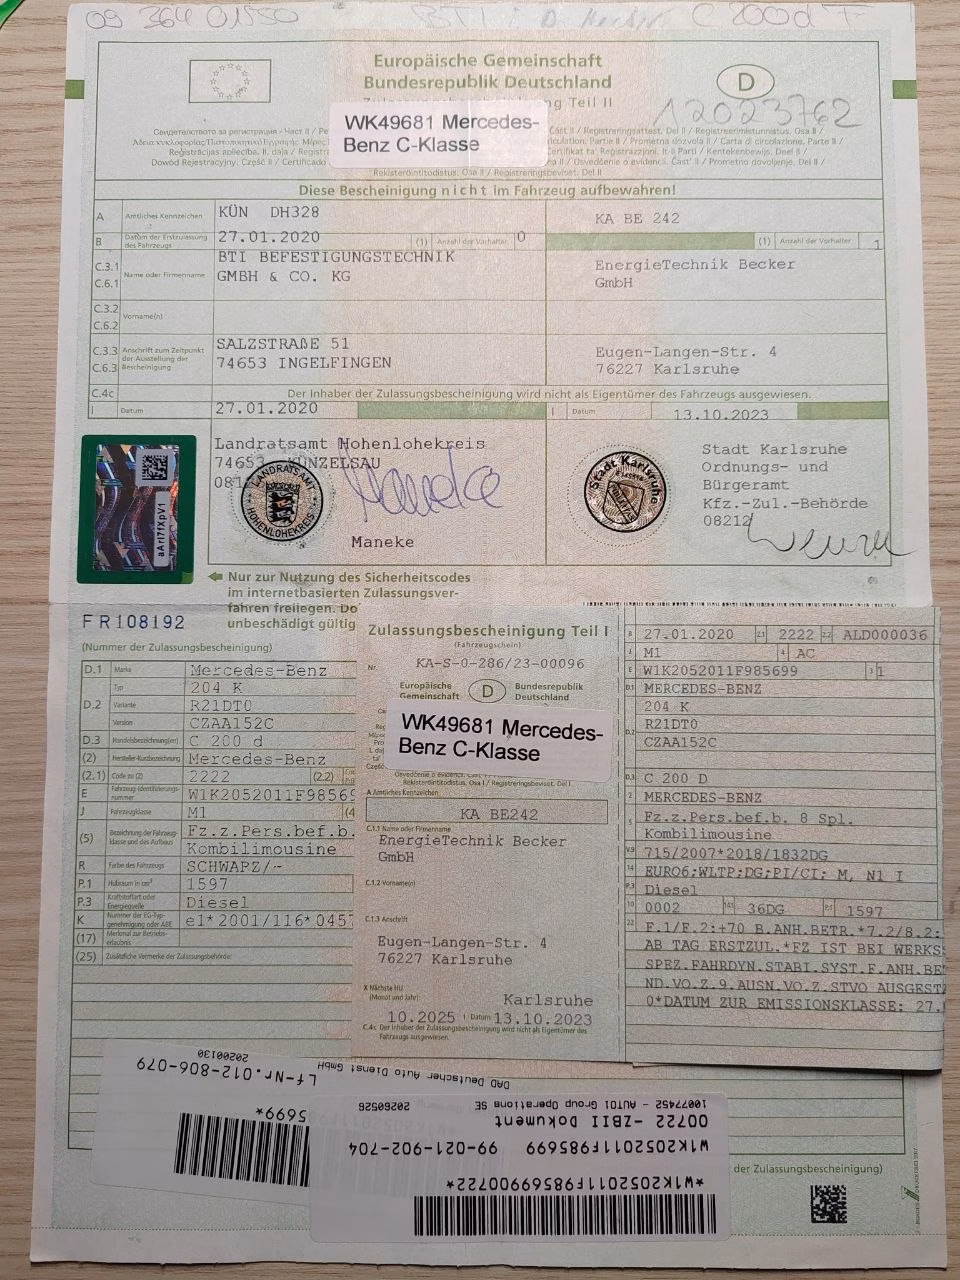 09 364 01550
C 200 d T
Europäische Gemeinschaft
Bundesrepublik Deutschland
D
Teil II
12023762
WK49681 Mercedes-
Benz C-Klasse
Diese Bescheinigung nicht im Fahrzeug aufbewahren!
A Amtliches Kennzeichen KÜN DH328 KA BE 242
B Datum der Erstzulassung des Fahrzeugs 27.01.2020 (1) Anzahl der Vorhalter 0 (1) Anzahl der Vorhalter 1
C.3.1 C.6.1 Name oder Firmenname BTI BEFESTIGUNGSTECHNIK
GMBH & CO. KG
EnergieTechnik Becker
GmbH
C.3.2 C.6.2 Vorname(n)
C.3.3 C.6.3 Anschrift zum Zeitpunkt der Ausstellung der Bescheinigung
SALZSTRAßE 51
74653 INGELFINGEN
Eugen-Langen-Str. 4
76227 Karlsruhe
C.4c Der Inhaber der Zulassungsbescheinigung wird nicht als Eigentümer des Fahrzeugs ausgewiesen.
I Datum 27.01.2020 I Datum 13.10.2023
Landratsamt Hohenlohekreis
74653 KÜNZELSAU
LANDRATSAMT HOHENLOHEKREIS
Maneke
Stadt Karlsruhe
Stadt Karlsruhe
Ordnungs- und
Bürgeramt
Kfz.-Zul.-Behörde
08212
Nur zur Nutzung des Sicherheitscodes
im internetbasierten Zulassungsver-
fahren freilegen. Do
unbeschädigt gültig
FR108192
(Nummer der Zulassungsbescheinigung)
D.1 Marke Mercedes-Benz
D.2 Typ 204 K
Variante R21DT0
Version CZAA152C
D.3 Handelsbezeichnung(en) C 200 d
(2) Hersteller-Kurzbezeichnung Mercedes-Benz
(2.1) Code zu (2) 2222 (2.2)
E Fahrzeug-Identifizierungsnummer W1K2052011F98569
J Fahrzeugklasse M1 (4
(5) Bezeichnung der Fahrzeugklasse und des Aufbaus Fz.z.Pers.bef.b.
Kombilimousine
R Farbe des Fahrzeugs SCHWARZ/-
P.1 Hubraum in cm³ 1597
P.3 Kraftstoffart oder Energiequelle Diesel
K Nummer der EG-Typgenehmigung oder ABE e1*2001/116*0457
(17) Merkmal zur Betriebserlaubnis
(25) Zusätzliche Vermerke der Zulassungsbehörde:
Zulassungsbescheinigung Teil I
(Fahrzeugschein)
Nr. KA-S-0-286/23-00096
Europäische Gemeinschaft D Bundesrepublik Deutschland
WK49681 Mercedes-
Benz C-Klasse
A Amtliches Kennzeichen
KA BE242
C.1.1 Name oder Firmenname
EnergieTechnik Becker
GmbH
C.1.2 Vorname(n)
C.1.3 Anschrift
Eugen-Langen-Str. 4
76227 Karlsruhe
X Nächste HU (Monat und Jahr):
Karlsruhe
10.2025 I Datum 13.10.2023
C.4c Der Inhaber der Zulassungsbescheinigung wird nicht als Eigentümer des
Fahrzeugs ausgewiesen.
B 27.01.2020 2.1 2222 2.2 ALD000036
J M1 4 AC
E W1K2052011F985699 3 1
D.1 MERCEDES-BENZ
204 K
R21DT0
D.2 CZAA152C
D.3 C 200 D
2 MERCEDES-BENZ
5 Fz.z.Pers.bef.b. 8 Spl.
Kombilimousine
V.9 715/2007*2018/1832DG
14 EURO6;WLTP;DG;PI/CI; M, N1 I
P.3 Diesel
10 0002 14.1 36DG P.1 1597
22 F.1/F.2:+70 B.ANH.BETR.*7.2/8.2:
AB TAG ERSTZUL.*FZ IST BEI WERKS
SPEZ.FAHRDYN.STABI.SYST.F.ANH.BE
ND.VO.Z.9.AUSN.VO.Z.STVO AUSGEST
0*DATUM ZUR EMISSIONSKLASSE: 27.
DAD Deutscher Auto Dienst GmbH
Lf-Nr.012-806-079
20200130
5699*
10077452 - AUTO1 Group Operations SE 20260526
00722 -ZBII Dokument
W1K2052011F985699 99-021-902-704
*W1K2052011F98569900722*
der Zulassungsbescheinigung)